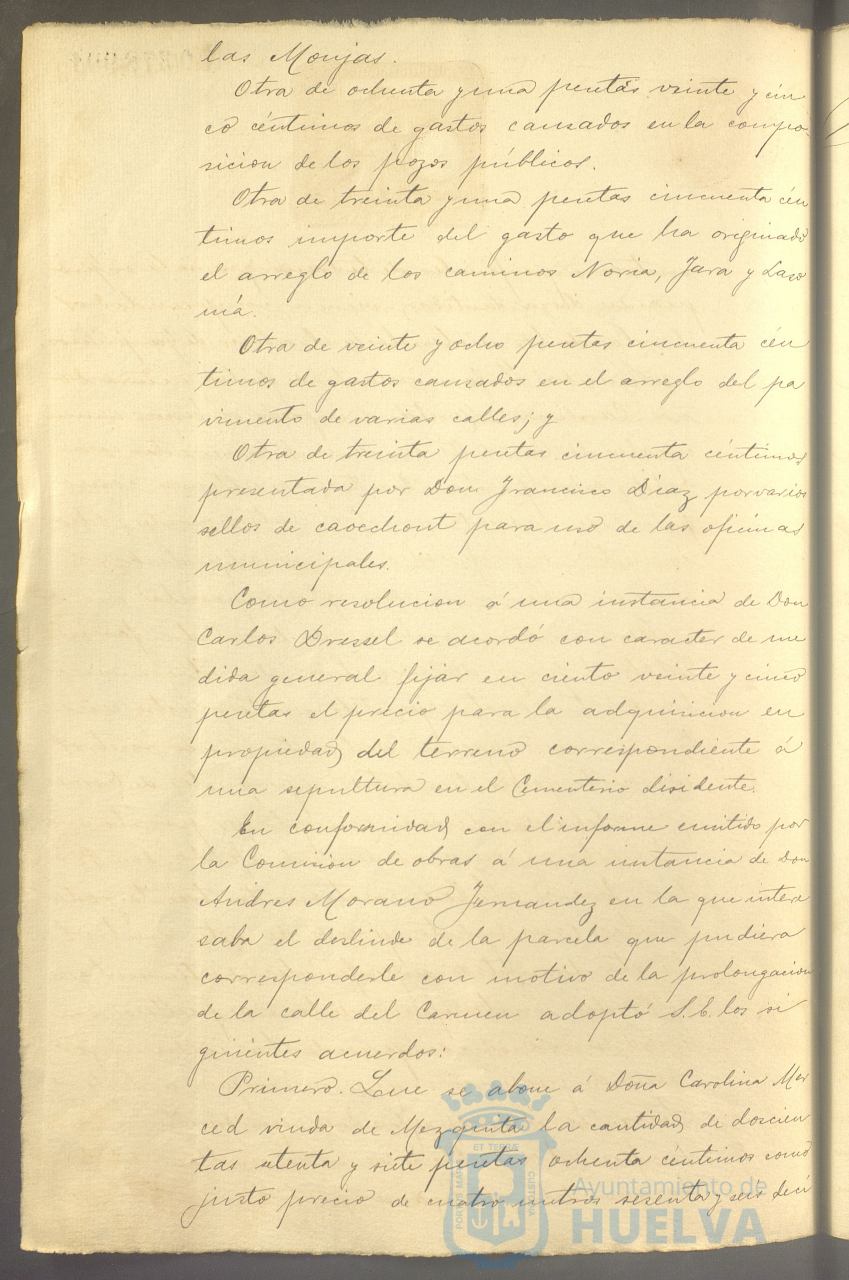 las Monjas.
Otra de ochenta y una pesetas veinte y cin
co céntimos de gastos causados en la compo-
sicion de los pozos públicos.
Otra de treinta y una pesetas cincuenta cén
timos importe del gasto que ha originado
el arreglo de los caminos Noria, Jara y
ma.
Otra de veinte y ocho pesetas cincuenta cén
timos de gastos causados en el arreglo del pa
vimento de varias calles; y
Otra de treinta pesetas cincuenta céntimos
presentada por Don Francisco Díaz, por varios
sellos de caoechout para uso de las oficinas
municipales.
Como resolucion á una instancia de Don
Carlos Dressel se acordó con caracter de me
dida general fijar en ciento veinte y cinco
pesetas el precio para la adquisicion en
propiedad del terreno correspondiente á
una sepultura en el Cementerio disidente.
En conformidad con el informe emitido por
la Comision de obras á una instancia de Don
Andres Morano Fernandez en la que intere
saba el deslinde de la parcela que pudiera
corresponderle con motivo de la prolongacion
de la calle del Carmen adoptó S.E. los si
guientes acuerdos:
Primero. Que se abone á Doña Carolina Mer
ced viuda de Mezquita la cantidad de doscien
tas setenta y siete pesetas ochenta céntimos como
justo precio de cuatro metros sesenta y seis decí
Ayuntamiento de
HUELVA